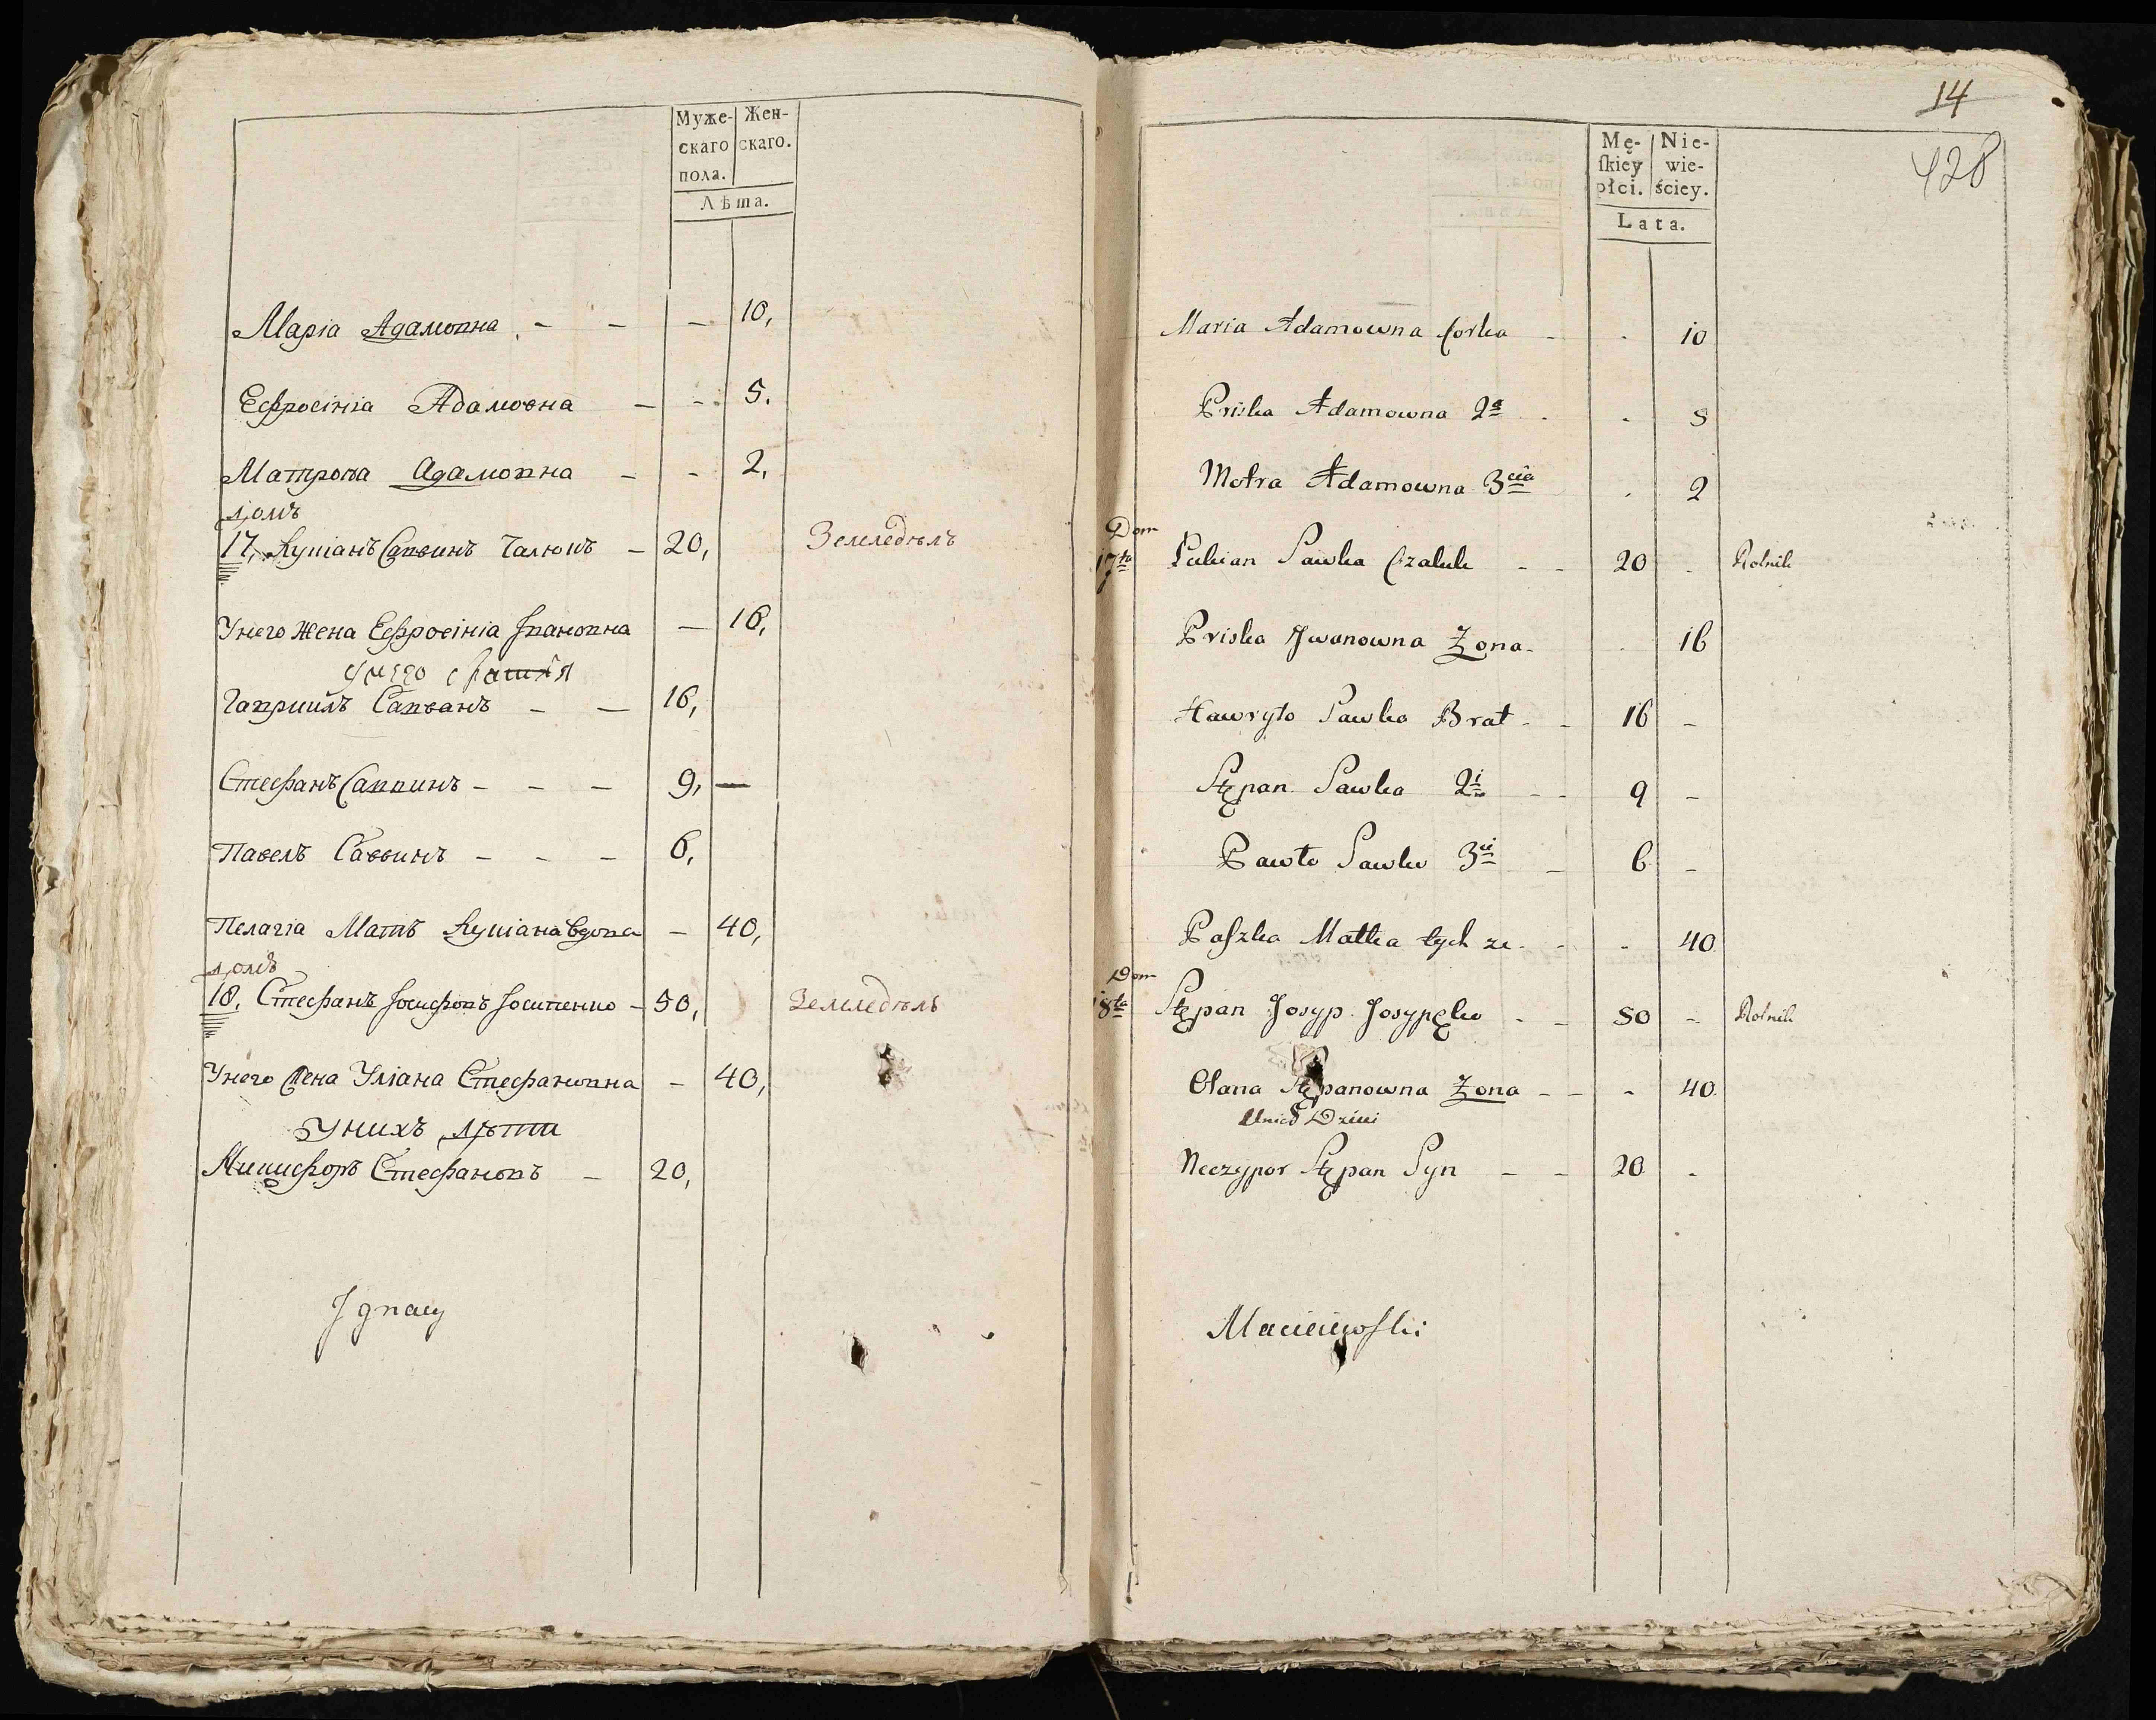 Муже-
скаго
пола.
Жен-
скаго.
Лѣта.
Маріа Адамовна - - - 10,
Ефросініа Адамовна - - 5.
Матрона Адамовна - - 2,
домъ
17, Лукіанъ Саввинъ Чалюкъ - 20, Земледѣлъ
Унего Жена Ефросініа Івановна — 16,
унего братія
Гавриилъ Саввинъ - - 16,
Стефанъ Саввинъ - - - 9, —
Павелъ Саввинъ - - - 6,
Пелагіа Мать Лукіана Вдова - 40,
домъ
18. Стефанъ Іосифовъ Іосипенко - 50, Земледѣлъ
Унего Жена Уліана Стефановна - 40,
Унихъ дѣти
Никифоръ Стефановъ - 20,
Ignacy
14
428
Mę-
ſkiey
płci.
Nie-
wie-
ściey.
Lata.
Maria Adamowna Corka - - 10
Priska Adamowna 2ª - - 5
Motra Adamowna 3cia - 2
Dom
17ta Łukian Sawka Czaluk - - 20 - Rolnik
Priska Jwanowna Żona - - 16
Hawryło Sawka Brat - - 16 -
Stępan Sawka 2i - - 9 -
Pawło Sawka 3ci - 6 -
Paſzka Matka tych że - - - 40
Dom
18ta Stępan Josyp Josypęko - - 50 - Rolnik
Olana Stępanowna Żona - - - 40
Unich Dzieci
Neczypor Stępan Syn - - 20 -
Macieiewſki